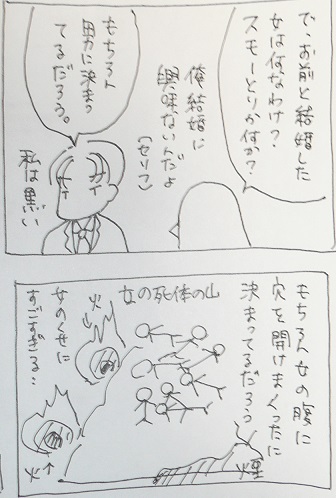 で、お前と結婚した
女は何なわけ?
スモーとりか何か?
俺結婚に
興味ないんだよ
(セリフ)
もちろん
男に決まっ
てるだろう。
私は黒い
もちろん女の腹に
穴を開けまくったに
決まってるだろう
煙
女の死体の山
火
女のくせに
すごすぎる…
火